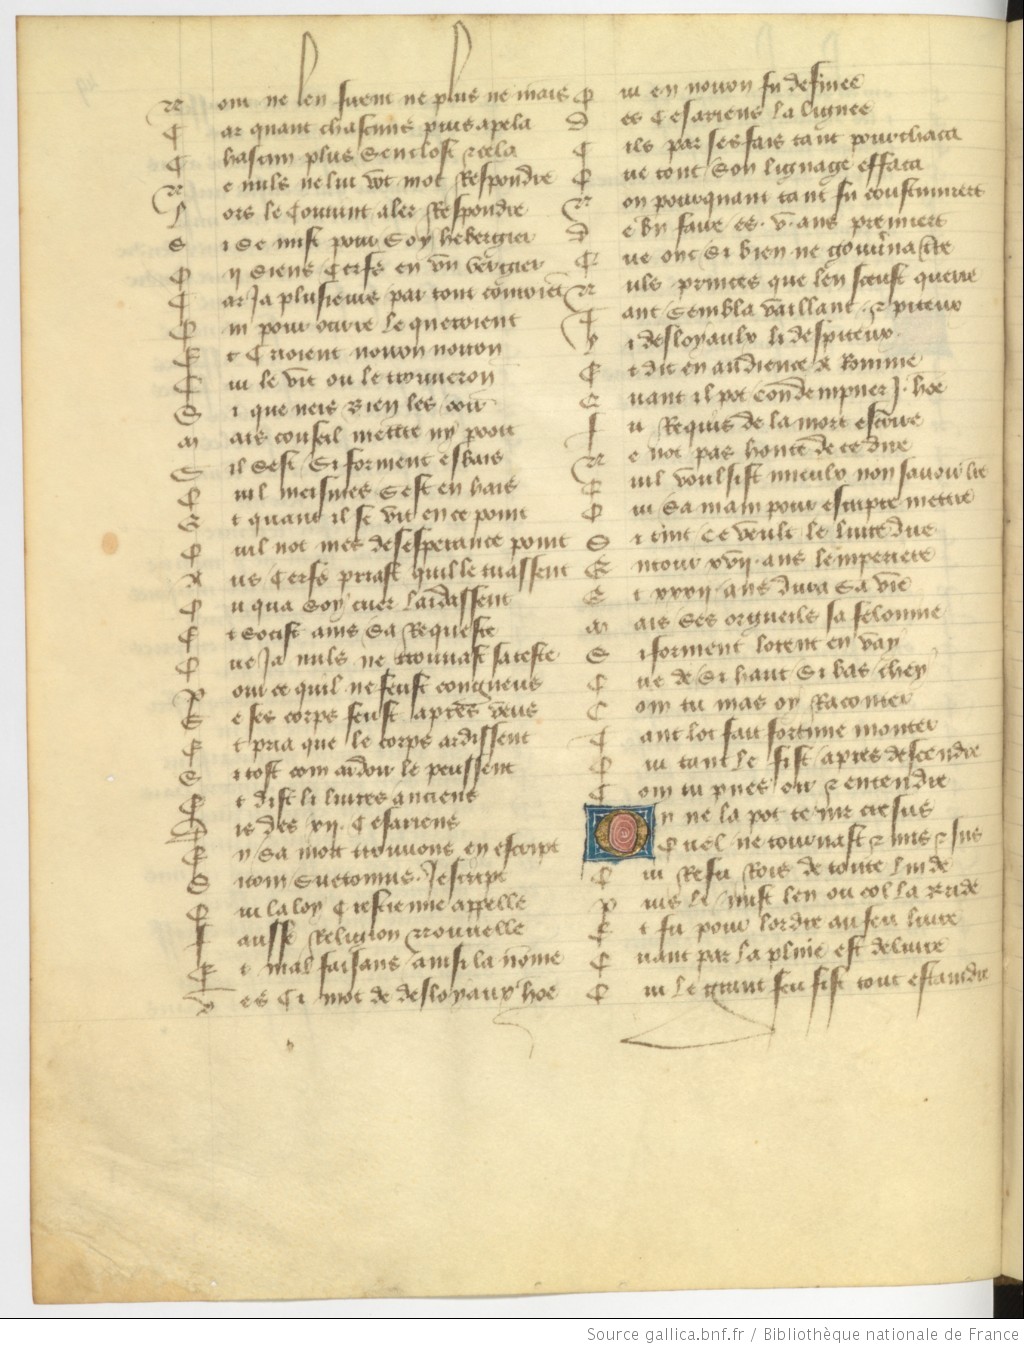 N om ne len firent ne plus ne mais
C ar quant chascuns puis apela
C hascun plus senclost & cela
N e nuls ne lui volt mot Respondre
L ors le Convint aler Respondre
S i se mist pour Soy hebergier
O ii siens Cerfs en vn vergier
C ar Ja plusieurs par tout couroient
Q ui pour ocirre le queroient
E t Crioient noiron noiron
Q ui le vit ou le trouueron
S i que neis bien les ooit
M ais conseil mettre ny pooit
S il Sest Si forment esbais
Q uil meismes Sest en hais
E t quant il se vit en ce point
Q uil not mes desesperance point
A us Cerfs priast quil le tuassent
O u qua Soy tuer laidassent
E t Socist ains Sa Requeste
Q ue Ja nuls ne trouuast sa teste
P our ce quil ne feust congneus
S e ses corps feust apres veus
E t pria que le corps ardissent
S i tost com ardoir le peussent
E t dist li liures anciens
D is des xii Cesariens
E n Sa mort trouuons en escript
S icom Suetonius lescript
Q ui la loy Crestienne appelle
F ausse Religion nouuelle
E t mal faisans ainsi la nome
V es Ci mot de desloyaux hoe
Q ui en noiron fu definee
D es Cesariens la lignee
C ils par ses fais tant pourchaca
Q ue tout Son lignage effaca
N on pourquant tant fu coustumiers
D e bn faire es v ans premiers
Q ue onc Si bien ne gouuerna tre
N uls princes que len sceust querre
T ant Sembla vaillant & piteux
L i desloyaulx li despiteux
E t dit en audience a Romme
Q uant il pot Condempner J hoe
F u Requis de la mort escrire
N e not pas honte de ce dire
Q uil voulsist mieulx non sauoir lre
Q ue Sa main pour escripre mettre
S i tint Ce veult le liure dire
E ntour xvii ans lempiere
E t xxxii ans dura Sa vie
M ais Ses orgueils sa felonnie
S i forment lorent en vay
Q ue de Si hault Si bas chey
C om tu mas oy Raconter
T ant lot fait fortune monter
Q ui tant le fist apres descendre
C om tu pues oir & entendre
O n ne la pot tenir cresus
Q uel ne tournast & ius & sus
Q ui Refu Rois de toute linde
P uis li mist len ou col la bride
E t fu pour lardre au feu liure
Q uant par la pluie est deliure
Q ui le grant feu fist tout estaindre
Source gallica.bnf.fr / Bibliothèque nationale de France